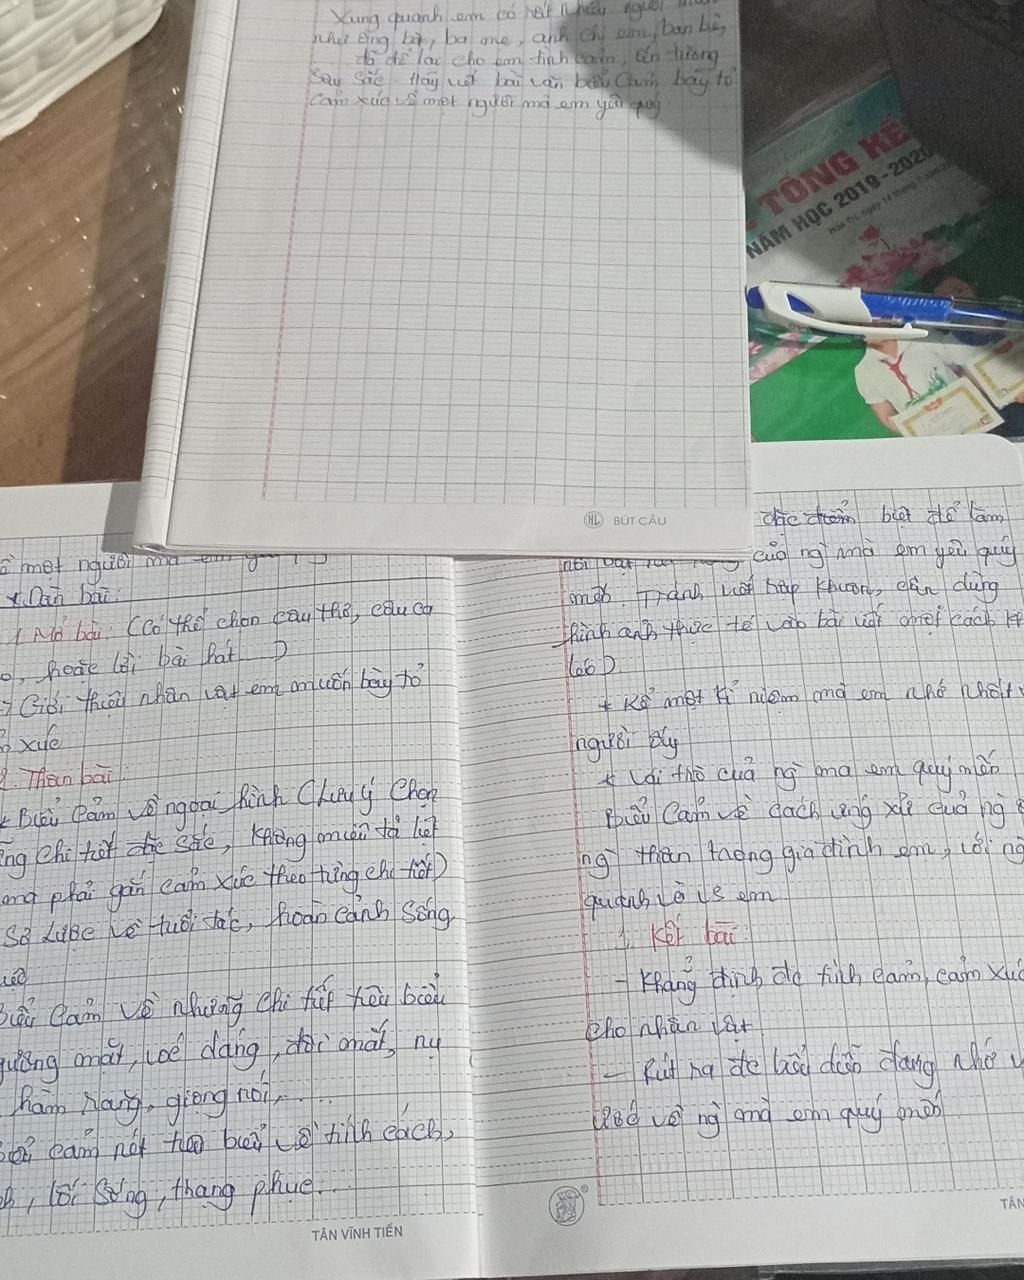 Xung quanh em có rất nhiều người
như ông bà, ba mẹ, anh chị em, bạn bè,
đã để lại cho em tình cảm, ấn tượng
sâu sắc. Hãy viết bài văn biểu cảm bày tỏ
cảm xúc về một người mà em yêu quý
TỔNG KẾ
NĂM HỌC 2019-2020
BÚT CẦU
một người mà em
* Dàn bài:
1 Mở bài: (Có thể chọn câu thơ, câu ca
hoặc lời bài hát )
Giới thiệu nhân vật em muốn bày tỏ
xúc
2. Thân bài:
* Biểu cảm về ngoại hình (Chú ý chọn
chi tiết đặc sắc, không miêu tả liệt
mà phải gắn cảm xúc theo từng chi tiết)
Sơ lược về tuổi tác, hoàn cảnh sống
Biểu cảm về những chi tiết tiêu biểu
gương mặt, vóc dáng, đôi mắt, nụ
hàm răng, giọng nói,....
cảm nét tiêu biểu về tính cách,
lối sống, trang phục...
TÂN VĨNH TIẾN
đặc điểm biệt để làm
của ng` mà em yêu quý
mến. Tránh viết rập khuôn, cần dùng
hình ảnh thực tế vào bài viết một cách
léo)
* Kể một kỉ niệm mà em nhớ nhất
người ấy
* Vai trò của ng` mà em quý mến
Biểu cảm về cách ứng xử của ng`
ng` thân trong gia đình em, với
quanh và vs em
3. Kết bài:
- Khẳng định đc tình cảm, cảm xúc
cho nhân vật
- Rút ra đc bài dẫn đáng nhớ
về ng` mà em quý mến
TÂN